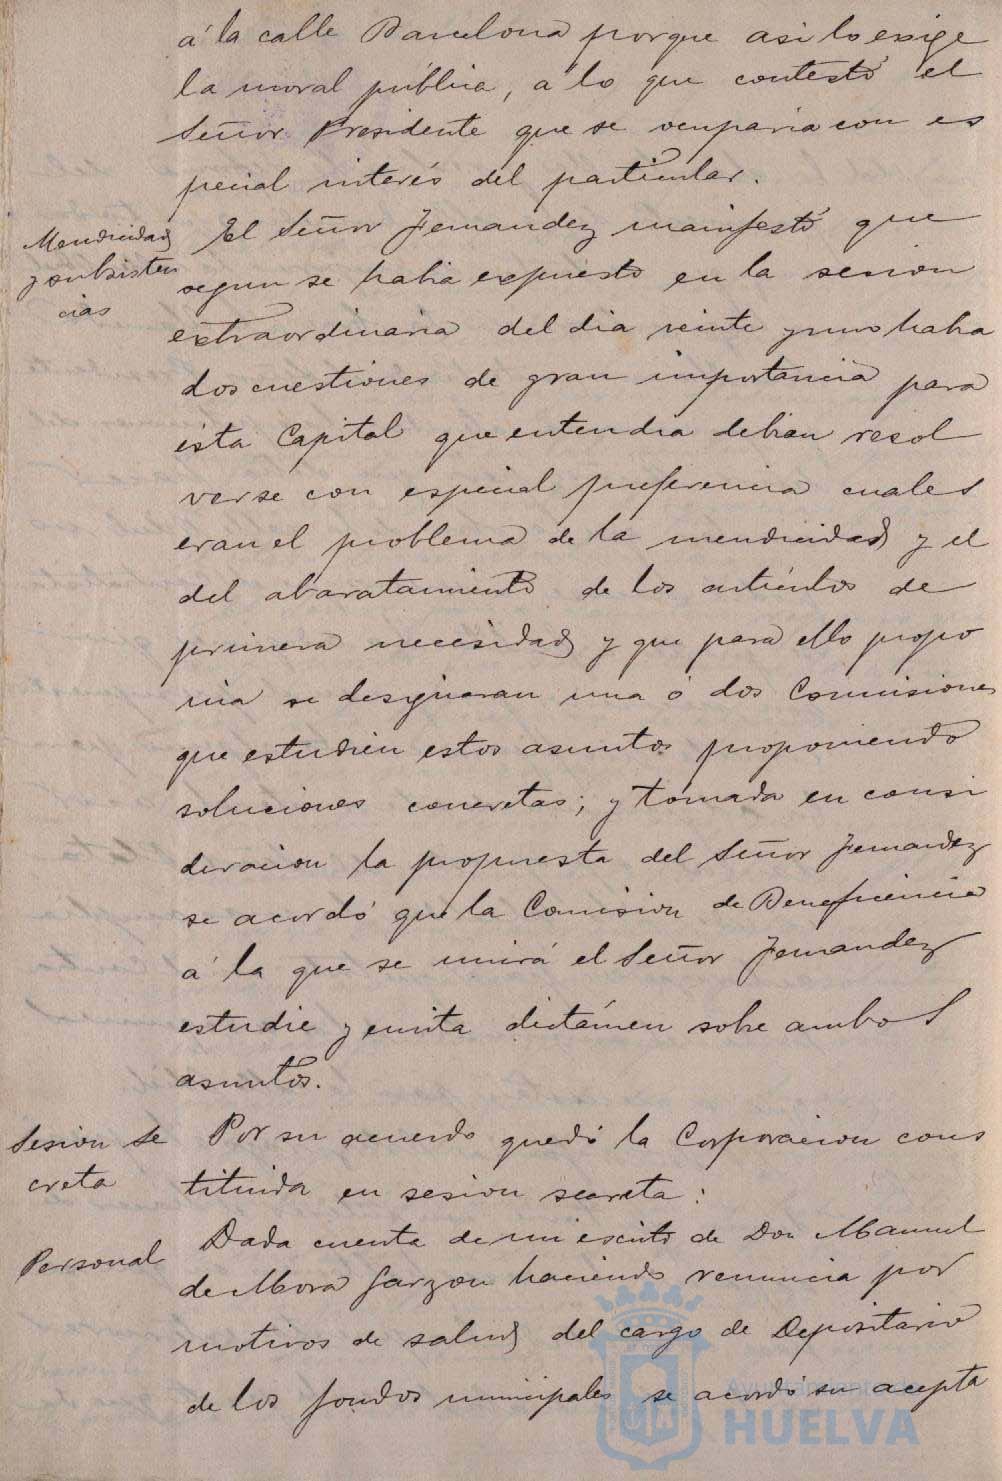 á la calle Barcelona porque asi lo exige
la moral pública, á lo que contestó el
Señor Presidente que se ocuparia con es
pecial interés del particular.
Mendicidad
y subsisten
cias
El Señor Fernandez manifestó que
segun se habia expuesto en la sesion
extraordinaria del dia veinte y uno habia
dos cuestiones de gran importancia para
esta Capital que entendia debian resol
verse con especial preferencia cuales
eran el problema de la mendicidad y el
del abaratamiento de los articulos de
primera necesidad y que para ello propo
nia se designaran una ó dos Comisiones
que estudien estos asuntos proponiendo
soluciones concretas; y tomada en consi
deracion la propuesta del Señor Fernandez
se acordó que la Comision de Beneficencia
á la que se unirá el Señor Fernandez
estudie y emita dictámen sobre ambos
asuntos.
Sesion Se
creta
Por su acuerdo quedó la Corporacion cons
tituida en sesion secreta:
Personal
Dada cuenta de un escrito de Don Manuel
de Mora Garzon haciendo renuncia por
motivos de salud del cargo de Depositario
de los fondos municipales se acordó su acepta
Ayuntamiento de
HUELVA